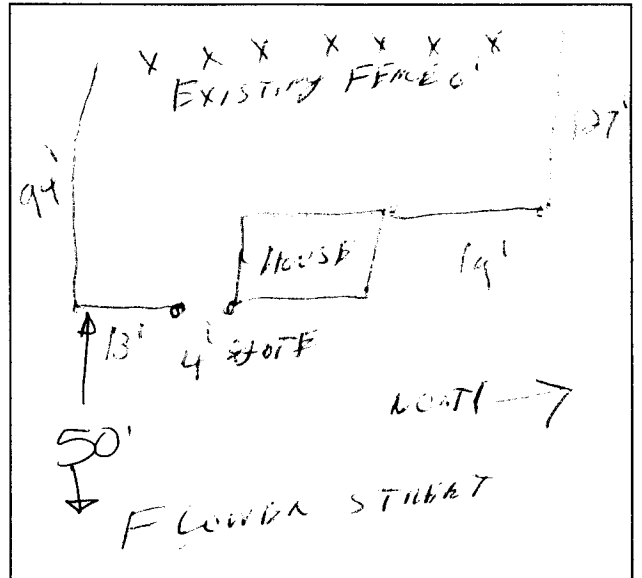 X X X X X X X
EXISTING FENCE 6'
127'
94'
HOUSE
19'
13'
4'
NORTH
50'
FLOWER STREET